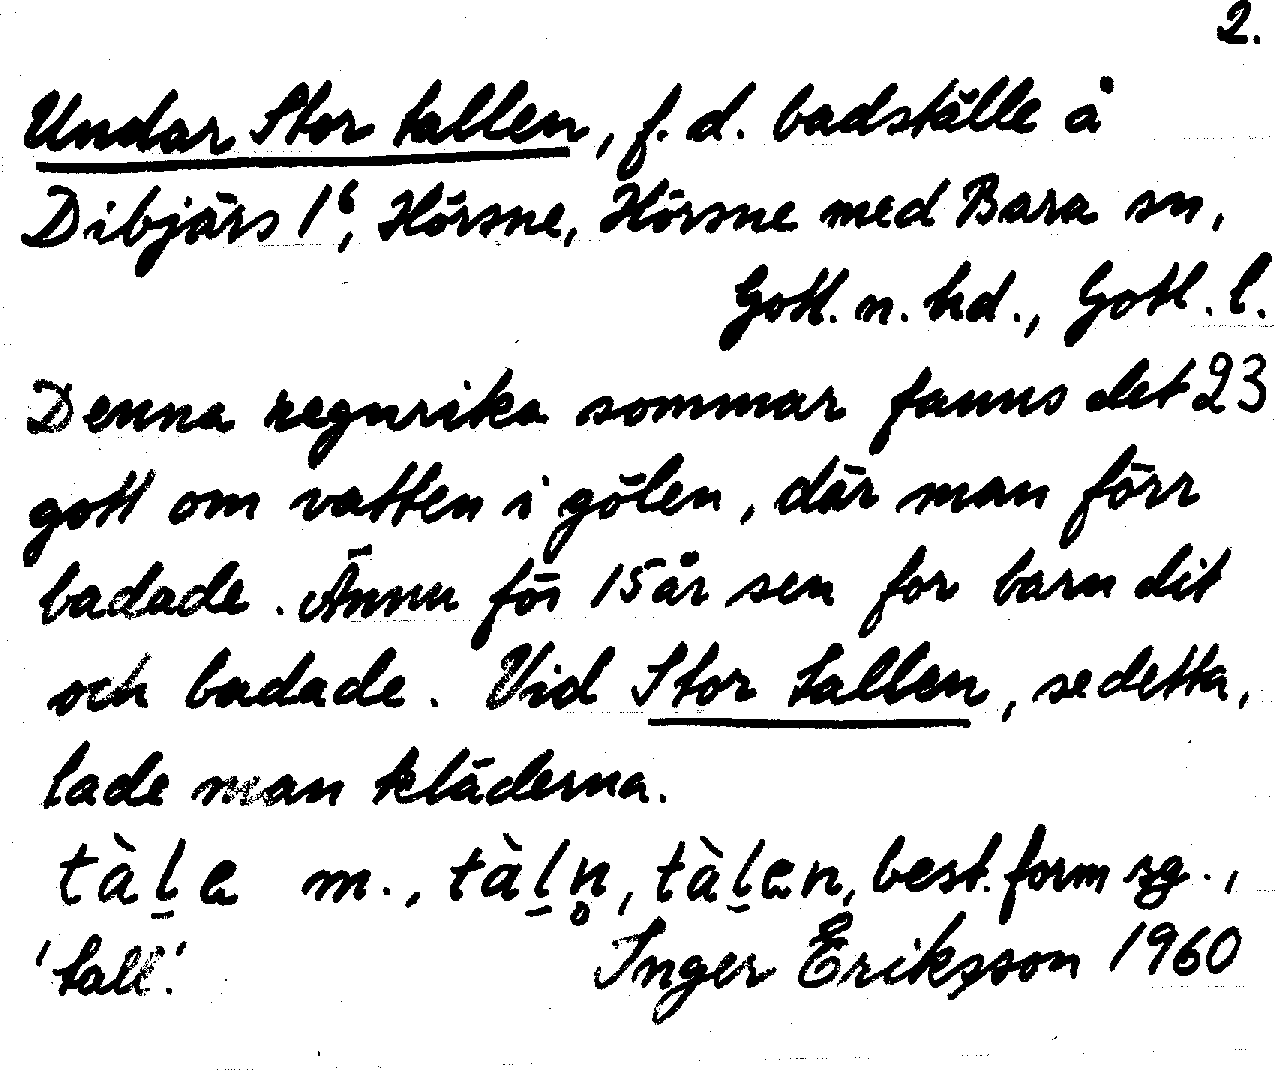 2.
Undar Stor tallen, f. d. badställe å
Dibjärs 1⁶, Hörsne, Hörsne med Bara sn,
Gotl. n. hd., Gotl. l.
Denna regnrika sommar fanns det 23
gott om vatten i gölen, där man förr
badade. Ännu för 15 år sen for barn dit
och badade. Vid Stor tallen, se detta,
lade man kläderna.
tàl̠ɐ m., tàl̠n̥, tàl̠ɐn, best. form sg.,
'tall'. Inger Eriksson 1960